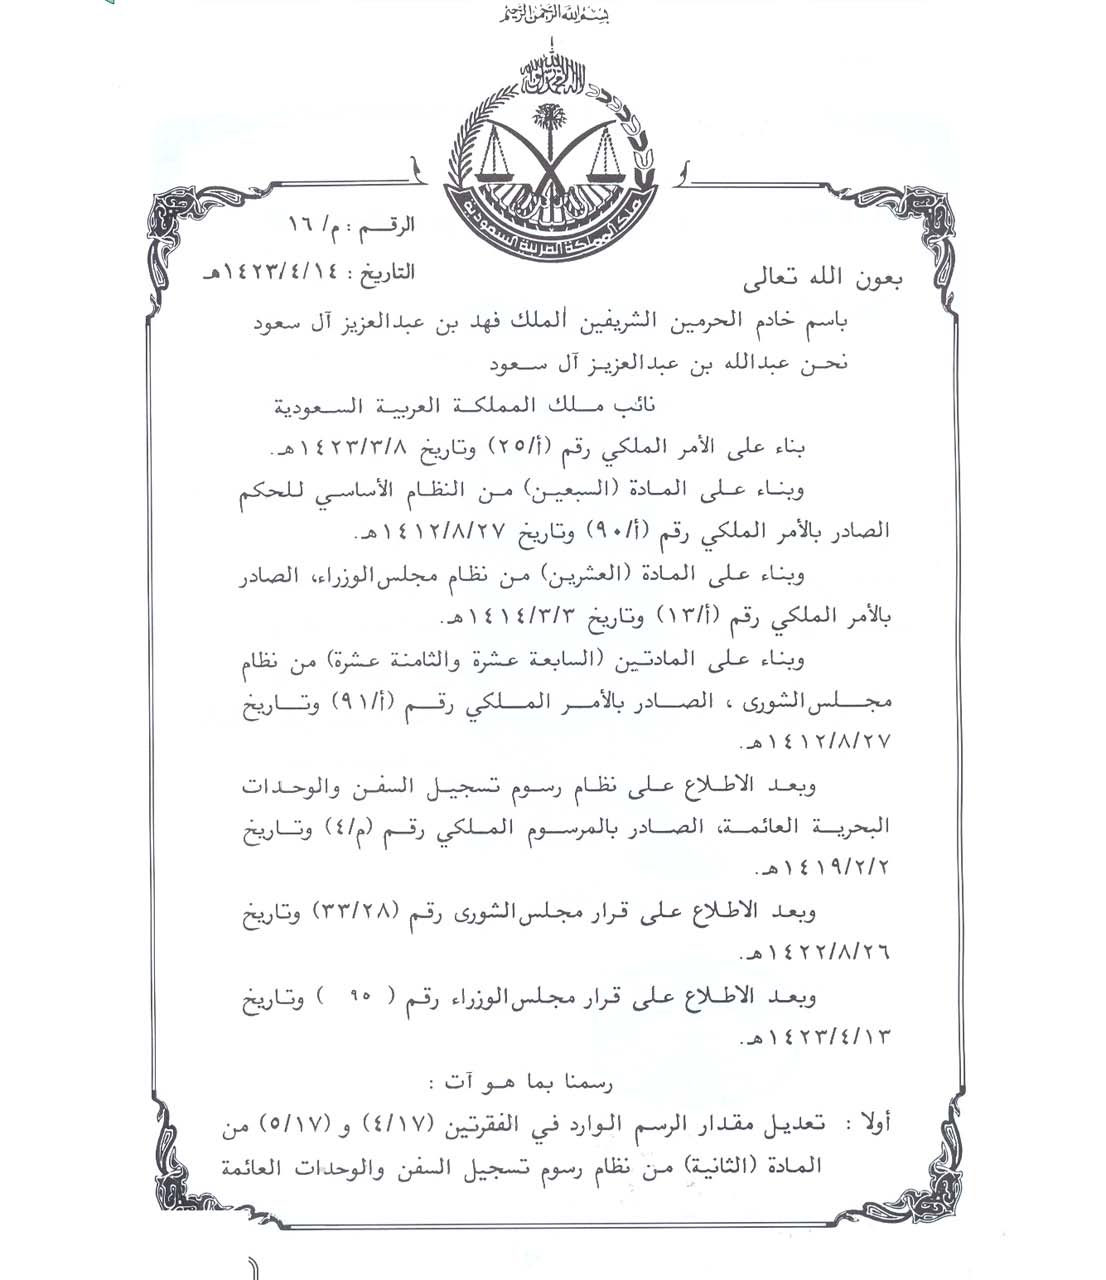 بسم الله الرحمن الرحيم
لا إله إلا الله محمد رسول الله
ملك المملكة العربية السعودية
الرقـــم : م/ ١٦
التاريخ : ١٤٢٣/٤/١٤هـ
بعون الله تعالى
باسم خادم الحرمين الشريفين الملك فهد بن عبدالعزيز آل سعود
نحـن عبدالله بن عبدالعزيـز آل سـعود
نائب مـلك المملكـة العربيـة السـعودية
بناء على الأمر الملكي رقم (أ/٢٥) وتاريخ ١٤٢٣/٣/٨هـ.
وبنـاء علـى المـادة (السبعين) مـن النظام الأساسـي للـحكم
الصادر بالأمر الملكي رقم (أ/٩٠) وتاريخ ١٤١٢/٨/٢٧هـ.
وبنـاء علـى المـادة (العشرين) من نظام مجلس الوزراء، الصادر
بالأمر الملكي رقم (أ/١٣) وتاريخ ١٤١٤/٣/٣هـ.
وبناء على المادتين (السابعة عشرة والثامنة عشرة) من نظام
مجـلس الشورى ، الصـادر بالأمـر المـلكي رقـم (أ/٩١) وتـاريخ
١٤١٢/٨/٢٧هـ.
وبعـد الاطـلاع علـى نظام رسـوم تسجيل السفـن والوحـدات
البحريـة العائمـة، الصـادر بالمرسـوم الملكي رقـم (م/٤) وتـاريخ
١٤١٩/٢/٢هـ.
وبعـد الاطـلاع علـى قرار مجلس الشورى رقم (٣٣/٢٨) وتاريخ
١٤٢٢/٨/٢٦هـ.
وبعـد الاطـلاع علـى قرار مجلس الوزراء رقم ( ٩٥ ) وتاريخ
١٤٢٣/٤/١٣هـ.
رسمنا بما هـو آت :
أولا : تعديل مقدار الرسم الوارد في الفقرتين (٤/١٧) و (٥/١٧) من
المادة (الثانية) من نظام رسوم تسجيل السفن والوحدات العائمة